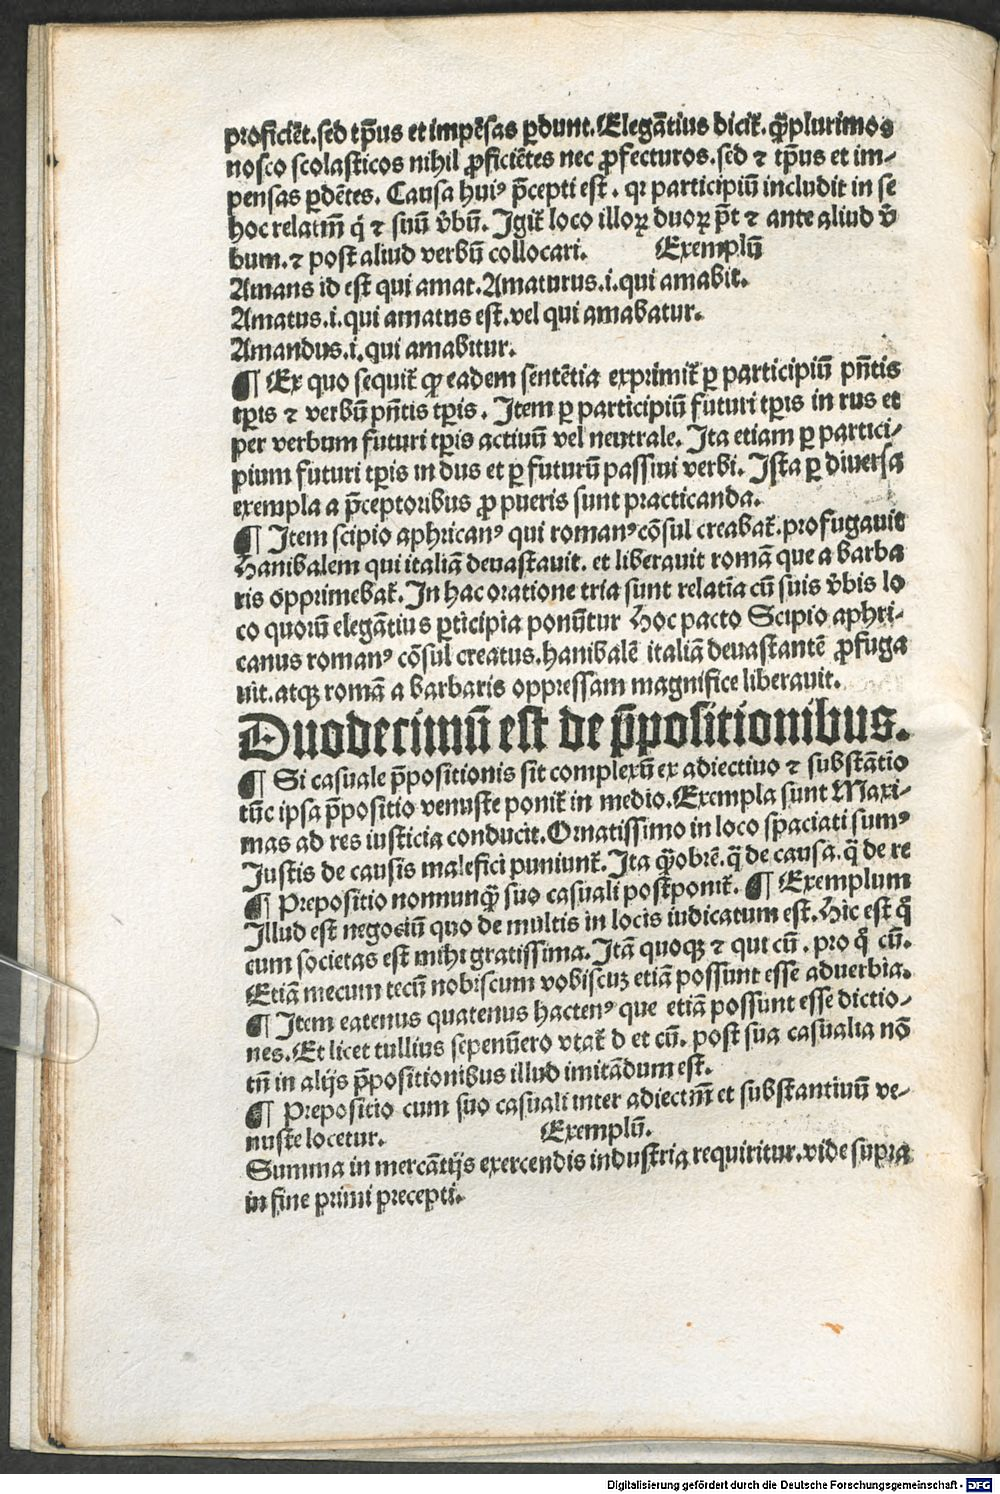 proficiēt.sed tp̄us et impēsas ꝑdunt.Elegātius dicit̄.qͣꝫplurimos
nosco scolasticos nihil ꝓficiētes nec ꝓfecturos.sed ⁊ tp̄us et im-
pensas ꝑdētes. Causa huiꝰ p̄cepti est . qꝛ participiū includit in se
hoc relatiū q̇ ⁊ suū v̄bū. Igit̄ loco illoꝝ duoꝝ p̄t ⁊ ante aliud v̄
bum.⁊ post aliud verbū collocari. Exemplū
Amans id est qui amat.Amaturus.i.qui amabit.
Amatus.i.qui amatus est.vel qui amabatur.
Amandus.i.qui amabitur.
¶ Ex quo sequit̄ ꝙ eadem sentētia exprimit̄ ꝑ participiū pn̄tis
tp̄is ⁊ verbū pn̄tis tp̄is . Item ꝑ participiū futuri tp̄is in rus et
per verbum futuri tp̄is actiuū vel neutrale. Ita etiam ꝑ partici-
pium futuri tp̄is in dus et ꝑ futurū passiui verbi. Ista ꝑ diuersa
exempla a p̄ceptoribus ꝓ pueris sunt practicanda.
¶ Item scipio aphricanꝰ qui romanꝰ cōsul creabat̄.profugauit
Hanibalem qui italiā deuastauit. et liberauit romā que a barba
ris opprimebat̄.In hac oratione tria sunt relatiā cū suis v̄bis lo
co quorū elegātius ꝑticipia ponūtur Hoc pacto Scipio aphri-
canus romanꝰ cōsul creatus.hanibalē italiā deuastantē ꝓfuga
uit.atqꝫ romā a barbaris oppressam magnifice liberauit.
Duodecimū est de p̄positionibus.
¶ Si casuale p̄positionis sit complexū ex adiectiuo ⁊ substātio
tūc ipsa p̄positio venuste ponit̄ in medio.Exempla sunt Maxi-
mas ad res iusticia conducit.Ornatissimo in loco spaciati sumꝰ
Justis de causis malefici puniunt̄.Ita qͣꝫobrē.q̄ de causa.q̄ de re
¶ Prepositio nonnunqͣꝫ suo casuali postponit̄. ¶ Exemplum
Illud est negociū quo de multis in locis iudicatum est.Hic est q̊
cum societas est mihi gratissima.Itā quoqꝫ ⁊ qui cū . pro q̊ cū.
Etiā mecum tecū nobiscum vobiscuꝫ etiā possunt esse aduerbia.
¶ Item eatenus quatenus hactenꝰ que etiā possunt esse dictio-
nes.Et licet tullius sepenūero vtat̄ d et cū. post sua casualia nō
tn̄ in alijs p̄positionibus illud imitādum est.
¶ Prepositio cum suo casuali inter adiectīm et substantiuū ve-
nuste locetur. Exemplū.
Summa in mercātijs exercendis industria requiritur.vide supra
in fine primi precepti.
Digitalisierung gefördert durch die Deutsche Forschungsgemeinschaft - DFG